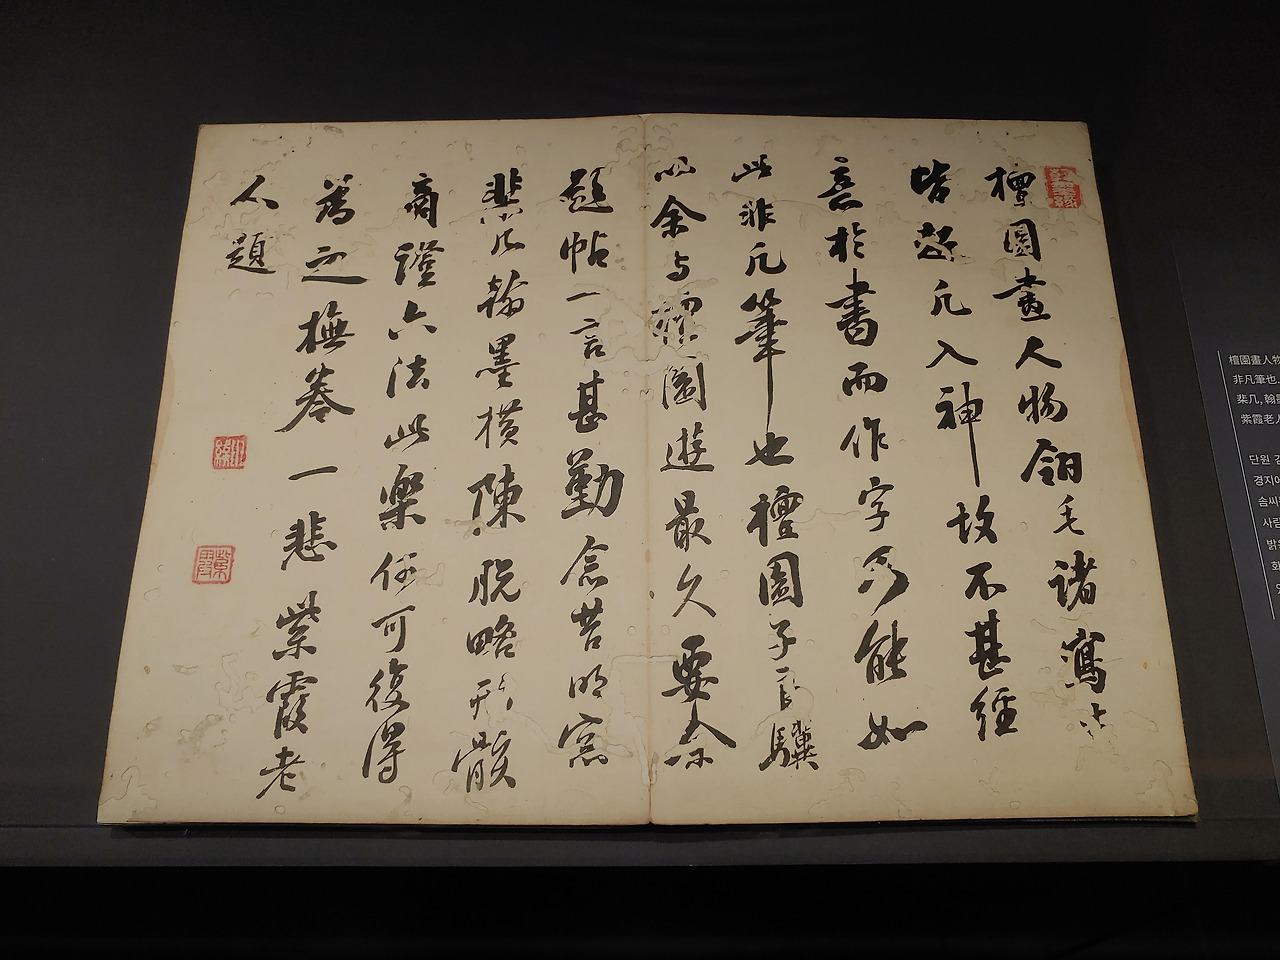 檀園畫人物翎毛諸寫法
皆超凡入神故不甚經
意於書而作字乃能如
此非凡筆也檀園子肎驥
以余与檀園遊最久要余
題帖一言甚勤念昔明窓
棐几翰墨橫陳脱略形骸
商證六法此樂何可復得
爲之撫卷一悲紫霞老
人題
檀園畫人物
非凡筆也.
棐几,翰
紫霞老
단원
경지에
솜씨
사람